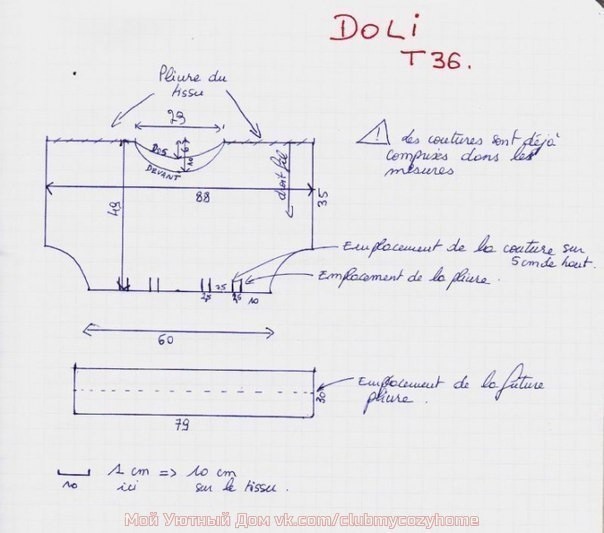 DOLi
T36.
Pliure du
tissu
29
Dos
6
10
DEVANT
⚠ Les coutures sont déjà
comprises dans les
mesures
droit fil
49
88
35
Emplacement de la couture sur
5cm de haut.
Emplacement de la pliure.
10
60
Emplacement de la future
pliure.
30
79
1 cm => 10 cm
10 ici sur le tissu.
Мой Уютный Дом vk.com/clubmycozyhome